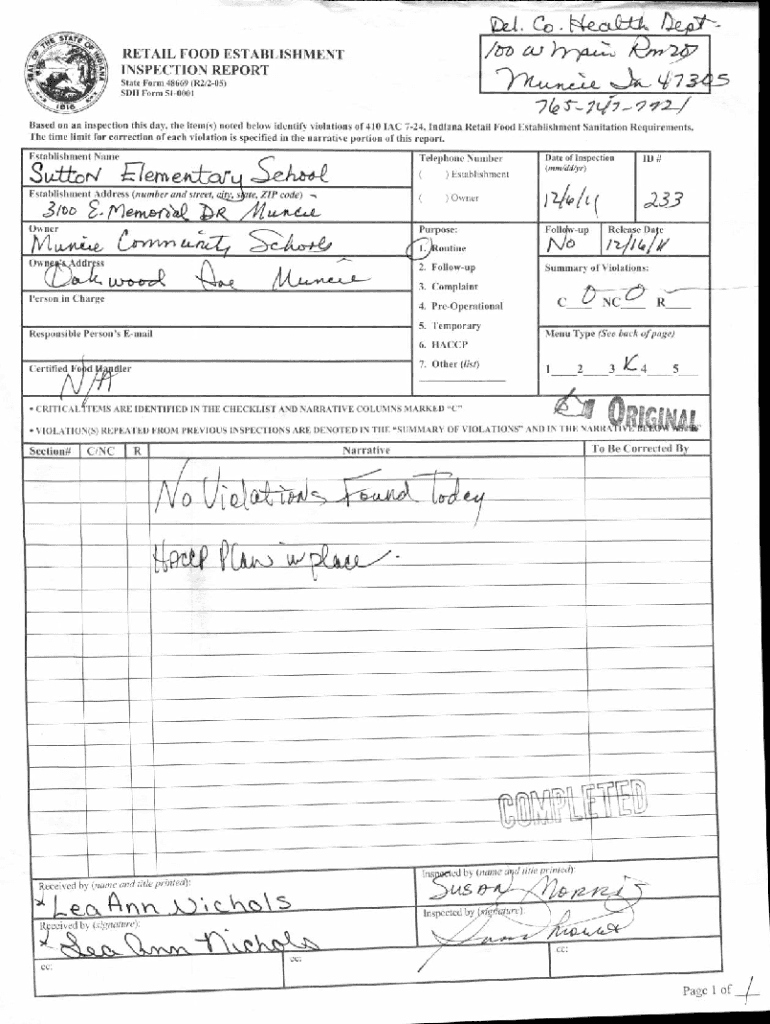 Del. Co. Health Dept.
100 W Main Rm 207
Muncie In 47305
765-747-7721
RETAIL FOOD ESTABLISHMENT
INSPECTION REPORT
State Form 48669 (R2/2-05)
SDH Form 51-0001
SEAL OF THE STATE OF INDIANA
1816
Based on an inspection this day, the item(s) noted below identify violations of 410 IAC 7-24, Indiana Retail Food Establishment Sanitation Requirements.
The time limit for correction of each violation is specified in the narrative portion of this report.
Establishment Name
Sutton Elementary School
Telephone Number
( ) Establishment
( ) Owner
Date of Inspection
(mm/dd/yr)
12/6/11
ID #
233
Establishment Address (number and street, city, state, ZIP code)
3100 E. Memorial DR Muncie
Owner
Muncie Community Schools
Purpose:
1. Routine
2. Follow-up
3. Complaint
4. Pre-Operational
5. Temporary
6. HACCP
7. Other (list)
Follow-up
No
Release Date
12/16/11
Owner's Address
Oakwood Ave Muncie
Summary of Violations:
C 0 NC 0 R
Person in Charge
Responsible Person's E-mail
Menu Type (See back of page)
1 2 3 4 5
Certified Food Handler
N/A
• CRITICAL ITEMS ARE IDENTIFIED IN THE CHECKLIST AND NARRATIVE COLUMNS MARKED "C"
ORIGINAL
• VIOLATION(S) REPEATED FROM PREVIOUS INSPECTIONS ARE DENOTED IN THE "SUMMARY OF VIOLATIONS" AND IN THE NARRATIVE BELOW
Section# C/NC R Narrative To Be Corrected By
No Violations Found Today
HACCP Plan in place.
COMPLETED
Received by (name and title printed):
x Lea Ann Nichols
Inspected by (name and title printed):
Susan Morris
Received by (signature):
x Lea Ann Nichols
Inspected by (signature):
cc:
cc:
cc:
Page 1 of 1